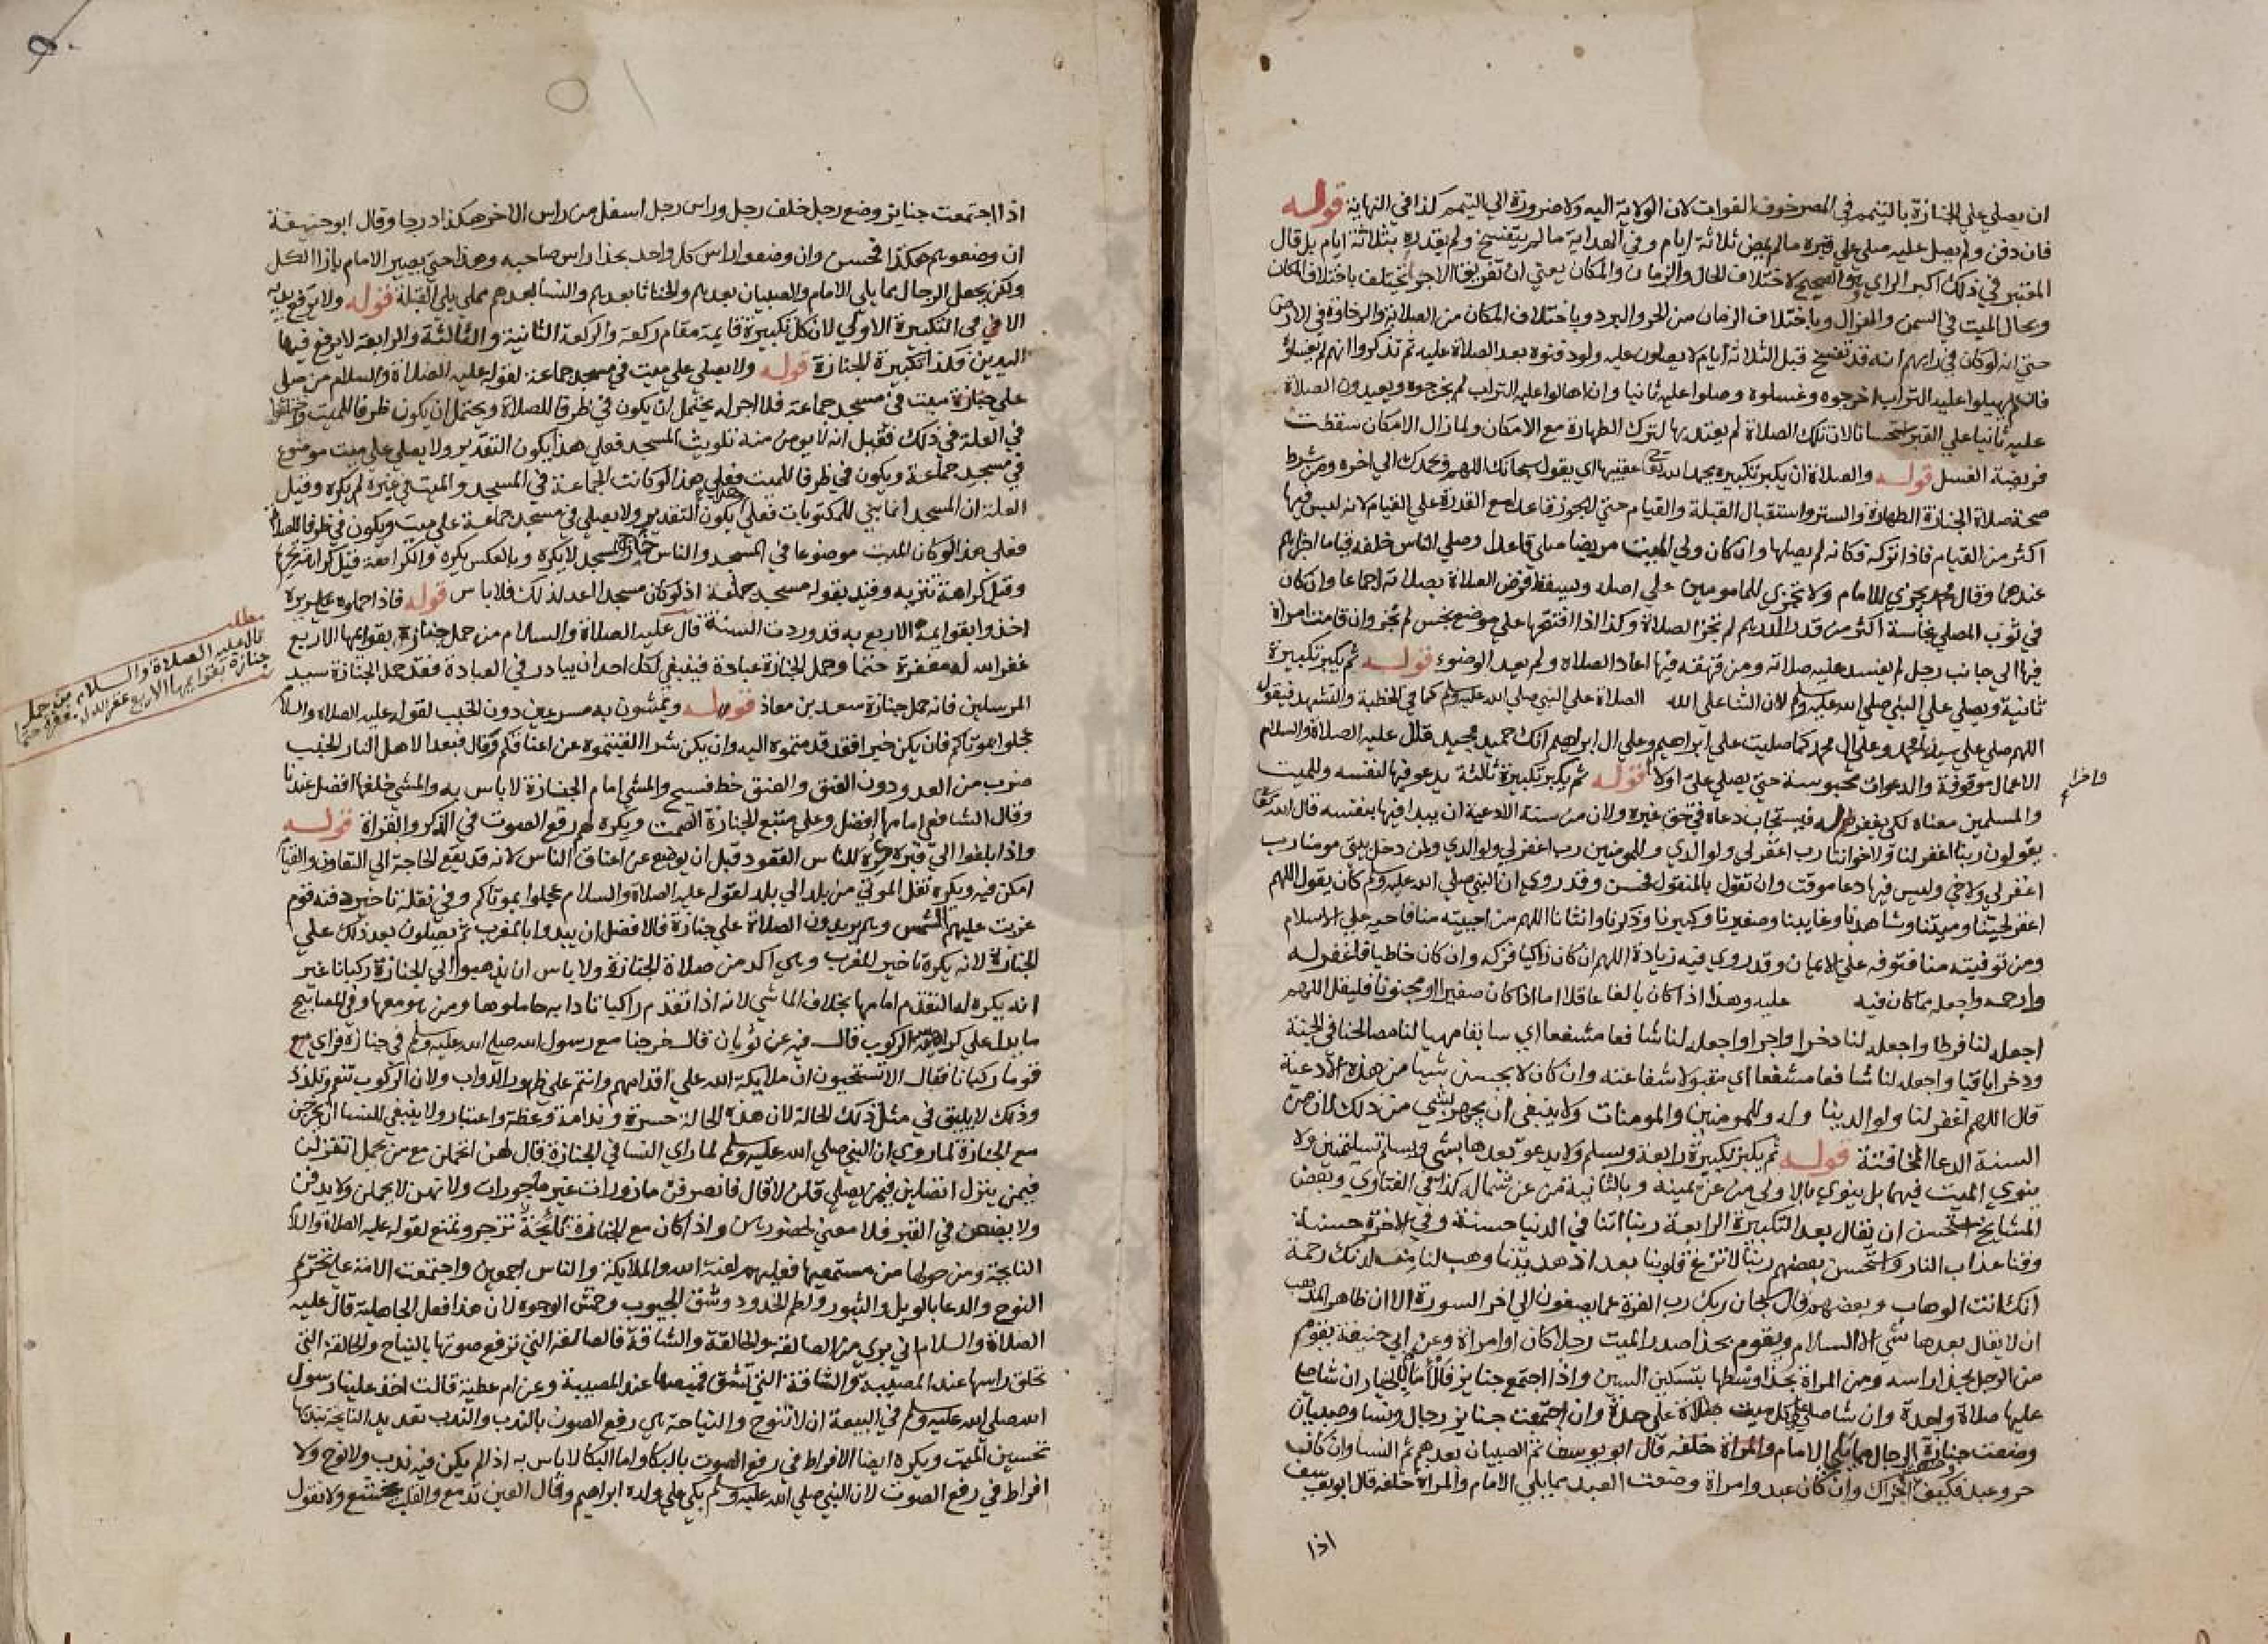 ان يصلي علي الجنازة بالتيمم في المصر خوف الفوات لان الولاية اليه ولا ضرورة الي التيمم كذا في النهاية قوله
فان دفن ولم يصل عليه صلي علي قبره مالم يمض ثلاثة ايام وفي الهداية مالم يتفسخ ولم يقدره بثلاثة ايام بل قال
المعتبر في ذلك اكبر الراي هو الصحيح لاختلاف الحال والزمان والمكان يعني ان تفريق الاجزا يختلف باختلاف المكان
وبحال الميت في السمن والهزال وباختلاف الزمان من الحر والبرد وباختلاف المكان من الصلابة والرخاوة في الارض
حتي انه لو كان في رايهم انه قد تفسخ قبل الثلاثة ايام لا يصلون عليه ولو دفنوه بعد الصلاة عليه ثم تذكروا انهم لم يغسلوه
فان لم يهيلوا عليه التراب اخرجوه وغسلوه وصلوا عليه ثانيا وان اهالوا عليه التراب لم يخرجوه ويعيدون الصلاة
عليه ثانيا علي القبر استحسانا لان تلك الصلاة لم يعتد بها لترك الطهارة مع الامكان ولما زال الامكان سقطت
فريضة الغسل قوله والصلاة ان يكبر تكبيرة يحمد الله تعالي عقيبها اي يقول سبحانك اللهم وبحمدك الي اخره ومن شرط
صحة صلاة الجنازة الطهارة والستر واستقبال القبلة والقيام حتي لا يجوز قاعدا مع القدرة علي القيام لانه ليس فيها
اكثر من القيام فاذا تركه فكانه لم يصلها وان كان ولي الميت مريضا صلي قاعدا وصلي الناس خلفه قياما اجزاهم
عندهما وقال محمد يجزي للامام ولا يجزي للمامومين علي اصله ويسقط فرض الصلاة بصلاته اجماعا وان كان
في ثوب المصلي نجاسة اكثر من قدر الدرهم لم تجز الصلاة وكذا اذا افتتحها علي موضع نجس لم تجز وان قامت امراة
فيها الي جانب رجل لم يفسد عليه صلاته ومن قهقه فيها اعاد الصلاه ولم يعد الوضوء قوله ثم يكبر تكبيرة
ثانية ويصلي علي النبي صلي الله عليه وسلم لان الثنا علي الله الصلاة علي النبي صلي الله عليه وسلم كما في الخطبة والتشهد فيقول
اللهم صلي علي سيدنا محمد وعلي ال محمد كما صليت علي ابراهيم وعلي ال ابراهيم انك حميد مجيد قال عليه الصلاة والسلام
الاعمال موقوفة والدعوات محبوسة حتي يصلي علي اولا قوله ثم يكبر تكبيرة ثالثة يدعو فيها لنفسه وللميت
واخرا
والمسلمين معناه لكي يغفر له فيستجاب دعاه في حق غيره ولان من سنة الادعية ان يبدا فيها بنفسه قال الله تعالي
يقولون ربنا اغفر لنا ولاخواننا رب اغفر لي ولوالدي وللمومنين رب اغفر لي ولوالدي ولمن دخل بيتي مومنا رب
اغفر لي ولاخي وليس فيها دعا موقت وان تقول بالمنقول فحسن وقد روي ان النبي صلي الله عليه وسلم كان يقول اللهم
اغفر لحينا وميتنا وشاهدنا وغايبنا وصغيرنا وكبيرنا وذكرنا وانثانا اللهم من احييته منا فاحيه علي الاسلام
ومن توفيته منا فتوفه علي الايمان وقد روي فيه زيادة اللهم ان كان زاكيا فزكه وان كان خاطيا فاغفر له
وارحمه واجعله مما كان فيه عليه وهذا اذا كان بالغا عاقلا اما اذا كان صغيرا او مجنونا فليقل اللهم
اجعله لنا فرطا واجعله لنا ذخرا واجرا واجعله لنا شافعا مشفعا اي سابقا مهيا لنا مصالحنا في الجنة
وذخرا باقيا واجعله لنا شافعا مشفعا اي مقبولا شفاعته وان كان لا يحسن شيا من هذه الادعية
قال اللهم اغفر لنا ولوالدينا وله وللمومنين والمومنات ولا ينبغي ان يجهر بشي من ذلك لان من
السنة الدعا المخافتة قوله ثم يكبر تكبيرة رابعة ويسلم ولا يدعو بعدها بشي ويسلم تسليمتين ولا
ينوي الميت فيهما بل ينوي بالاولي من عن يمينه وبالثانية من عن شماله كذا في الفتاوي وبعض
المشايخ استحسن ان يقال بعد التكبيرة الرابعة ربنا اتنا في الدنيا حسنة وفي الاخرة حسنة
وقنا عذاب النار واستحسن بعضهم ربنا لا تزغ قلوبنا بعد اذ هديتنا وهب لنا من لدنك رحمة
انك انت الوهاب وبعضهم قال سبحان ربك رب العزة عما يصفون الي اخر السورة الا ان ظاهر المذهب
ان لا يقال بعدها شي الا السلام ويقوم بحذا صدر الميت رجلا كان او امراة وعن ابي حنيفة يقوم
من الرجل بحذا راسه ومن المراة بحذا وسطها بتسكين السين واذا اجتمع جنايز فالامام بالخيار ان شا صلي
عليها صلاة واحدة وان شا صلي علي كل ميت صلاة علي حدة وان اجتمعت جنايز رجال ونسا وصبيان
وضعت جنازة الرجال مما يلي الامام والمراة خلفه قال ابو يوسف ثم الصبيان بعدهم ثم النسا وان كان
حر وعبد فكيف وان كان عبد وامراة وضعت العبد مما يلي الامام والمراة خلفه قال ابو يوسف
اذا
اذا اجتمعت جنايز وضع رجل خلف رجل وراس رجل اسفل من راس الاخر هكذا درجا وقال ابو حنيفة
ان وضعوهم هكذا فحسن وان وضعوا راس كل واحد بحذا راس صاحبه وهذا حتي يصير الامام بازا الكل
ولكن يجعل الرجال مما يلي الامام والصبيان بعدهم والخناثا بعدهم والنسا بعدهم مما يلي القبلة قوله ولا يرفع يديه
الا في التكبيرة الاولي لان كل تكبيرة قايمة مقام ركعة والركعة الثانية والثالثة والرابعة لا يرفع فيها
اليدين فكذا تكبيرة الجنازة قوله ولا يصلي علي ميت في مسجد جماعة لقوله عليه الصلاة والسلام من صلي
علي جنازة ميت في مسجد جماعة فلا اجر له يحتمل ان يكون في ظرفا للصلاة ويحتمل ان يكون ظرفا للميت واختلفوا
في العلة في ذلك فقيل انه لا يومن منه تلويث المسجد فعلي هذا يكون التقدير ولا يصلي علي ميت موضوع
في مسجد جماعة ويكون في ظرفا للميت فعلي هذا لو كانت الجماعة في المسجد والميت في غيره لم يكره وقيل
العلة ان المسجد انما بني للمكتوبات فعلي هذا يكون التقدير ولا يصلي في مسجد جماعة علي ميت ويكون في ظرفا للصلاة
فعلي هذا لو كان الميت موضوعا في المسجد والناس خارج المسجد لا يكره وبالعكس يكره والكراهة قيل كراهة تحريم
وقيل كراهة تنزيه وقيد بقوله مسجد جماعة اذ لو كان مسجدا اعد لذلك فلا باس قوله فاذا حملوه علي سريره
اخذوا بقوايمه الاربع به قد وردت السنة قال عليه الصلاة والسلام من حمل جنازة بقوايمها الاربع
غفر الله له مغفرة حتما وحمل الجنازة عبادة فينبغي لكل احد ان يبادر في العبادة فقد حمل الجنازة سيد
مطلب
قال عليه الصلاة والسلام من حمل
جنازة بقوايمها الاربع غفر الله له مغفرة حتما
المرسلين فانه حمل جنازة سعد بن معاذ قوله ويمشون به مسرعين دون الخبب لقوله عليه الصلاة والسلام
عجلوا بموتاكم فان يكن خيرا فقد قدمتموه اليه وان يكن شرا القيتموه عن اعناقكم وقال فبعدا لاهل النار الخبب
ضرب من العدو دون العنق والعنق خط فسيح والمشي امام الجنازة لا باس به والمشي خلفها افضل عندنا
وقال الشافعي امامها افضل وعلي متبع الجنازة الصمت ويكره لهم رفع الصوت في الذكر والقراة قوله
واذا بلغوا الي قبره كره للناس القعود قبل ان يوضع عن اعناق الناس لانه قد يقع الحاجة الي التعاون والقيام
امكن فيه ويكره نقل الموتي من بلد الي بلد لقوله عليه الصلاة والسلام عجلوا بموتاكم وفي نقله تاخير دفنه قوم
غربت عليهم الشمس وهم يريدون الصلاة علي جنازة فالافضل ان يبدوا بالمغرب ثم يصلون بعد ذلك علي
الجنازة لانه يكره تاخير المغرب وهي اكد من صلاة الجنازة ولا باس ان يذهبوا الي الجنازة ركبانا غير
انه يكره لها التقدم امامها بخلاف الماشي لانه اذا تقدم راكبا تاذا به حاملوها ومن هو معها وفي المصابيح
ما يدل علي كراهة الركوب قال فيه عن ثوبان قال خرجنا مع رسول الله صلي الله عليه وسلم في جنازة فراي مع
قوما ركبانا فقال الا تستحيون ان ملايكة الله علي اقدامهم وانتم علي ظهور الدواب ولان الركوب تنعم وتلذذ
وذلك لا يليق في مثل ذلك الحالة لان هذه الحالة حسرة وندامة وعظة واعتبار ولا ينبغي للنسا ان يخرجن
مع الجنازة لما روي ان النبي صلي الله عليه وسلم لما راي النسا في الجنازة قال لهن اتحملن مع من يحمل اتنزلن
فيمن ينزل اتصلين فيمن يصلي قلن لا قال فانصرفن مازورات غير ماجورات ولانهن لا يحملن ولا يدفن
ولا يضعن في القبر فلا معني لحضورهن واذا كان مع الجنازة نايحة تزجر وتمنع لقوله عليه الصلاة والسلام
النايحة ومن حولها من مستمعيها فعليهم لعنة الله والملايكة والناس اجمعين واجتمعت الامة علي تحريم
النوح والدعا بالويل والثبور ولطم الخدود وشق الجيوب وخمش الوجوه لان هذا فعل الجاهلية قال عليه
الصلاة والسلام اني بري من الصالقة والحالقة والشاقة فالصالقة التي ترفع صوتها بالنياح والحالقة التي
تحلق راسها عند المصيبة والشاقة التي تشق قميصها عند المصيبة وعن ام عطية قالت اخذ علينا رسول
الله صلي الله عليه وسلم في البيعة ان لا ننوح والنياحة هي رفع الصوت بالندب والندب تعديد النايحة بندبها
تحسين الميت ويكره ايضا الافراط في رفع الصوت بالبكا واما البكا لا باس به اذا لم يكن فيه ندب ولا نوح ولا
افراط في رفع الصوت لان النبي صلي الله عليه وسلم بكي علي ولده ابراهيم وقال العين تدمع والقلب يخشع ولا نقول